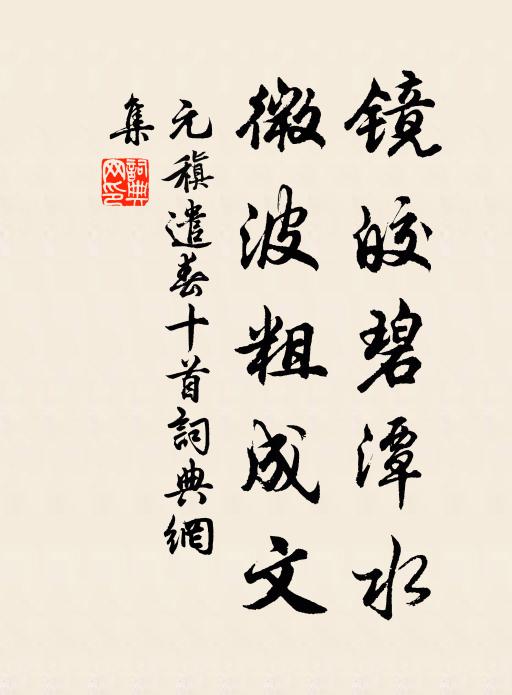 镜皎碧潭水
微波粗成文
元稹遣春十首詞典網
集
詞典
网印